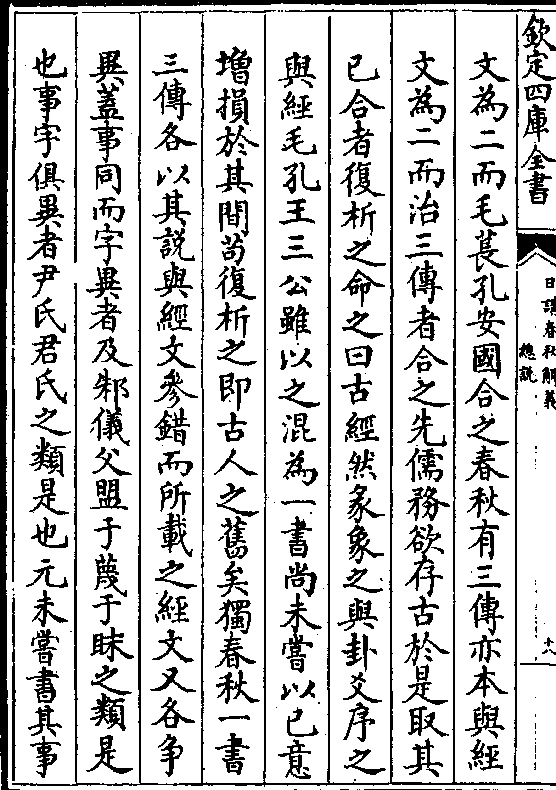 欽定四庫全書
日講春秋解義
總說
十八
文為二而毛萇孔安國合之春秋有三傳亦本與經
文為二而治三傳者合之先儒務欲存古於是取其
已合者復析之命之曰古經然彖象之與卦爻序之
與經毛孔王三公雖以之混為一書尚未嘗以已意
增損於其間茍復析之即古人之舊矣獨春秋一書
三傳各以其說與經文參錯而所載之經文又各爭
異蓋事同而字異者及邾儀父盟于蔑于眜之類是
也事字俱異者尹氏君氏之類是也元未嘗書其事